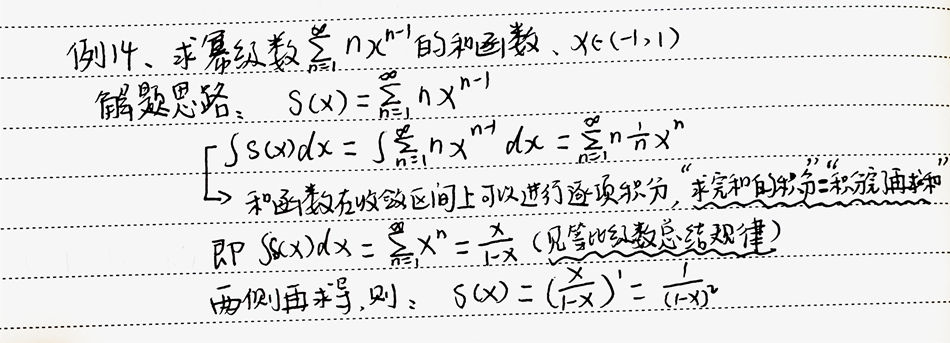 例14、求幂级数∑_{n=1}^{∞} nx^{n-1}的和函数、x∈(-1,1)
解题思路: S(x)=∑_{n=1}^{∞} nx^{n-1}
∫S(x)dx=∫∑_{n=1}^{∞} nx^{n-1} dx=∑_{n=1}^{∞} n \frac{1}{n} x^n
→ 和函数在收敛区间上可以进行逐项积分,“求完和的积分”=“积分完再求和”
即 ∫S(x)dx=∑_{n=1}^{∞} x^n=\frac{x}{1-x} (见等比级数总结规律)
两侧再求导,则: S(x)=(\frac{x}{1-x})'=\frac{1}{(1-x)^2}